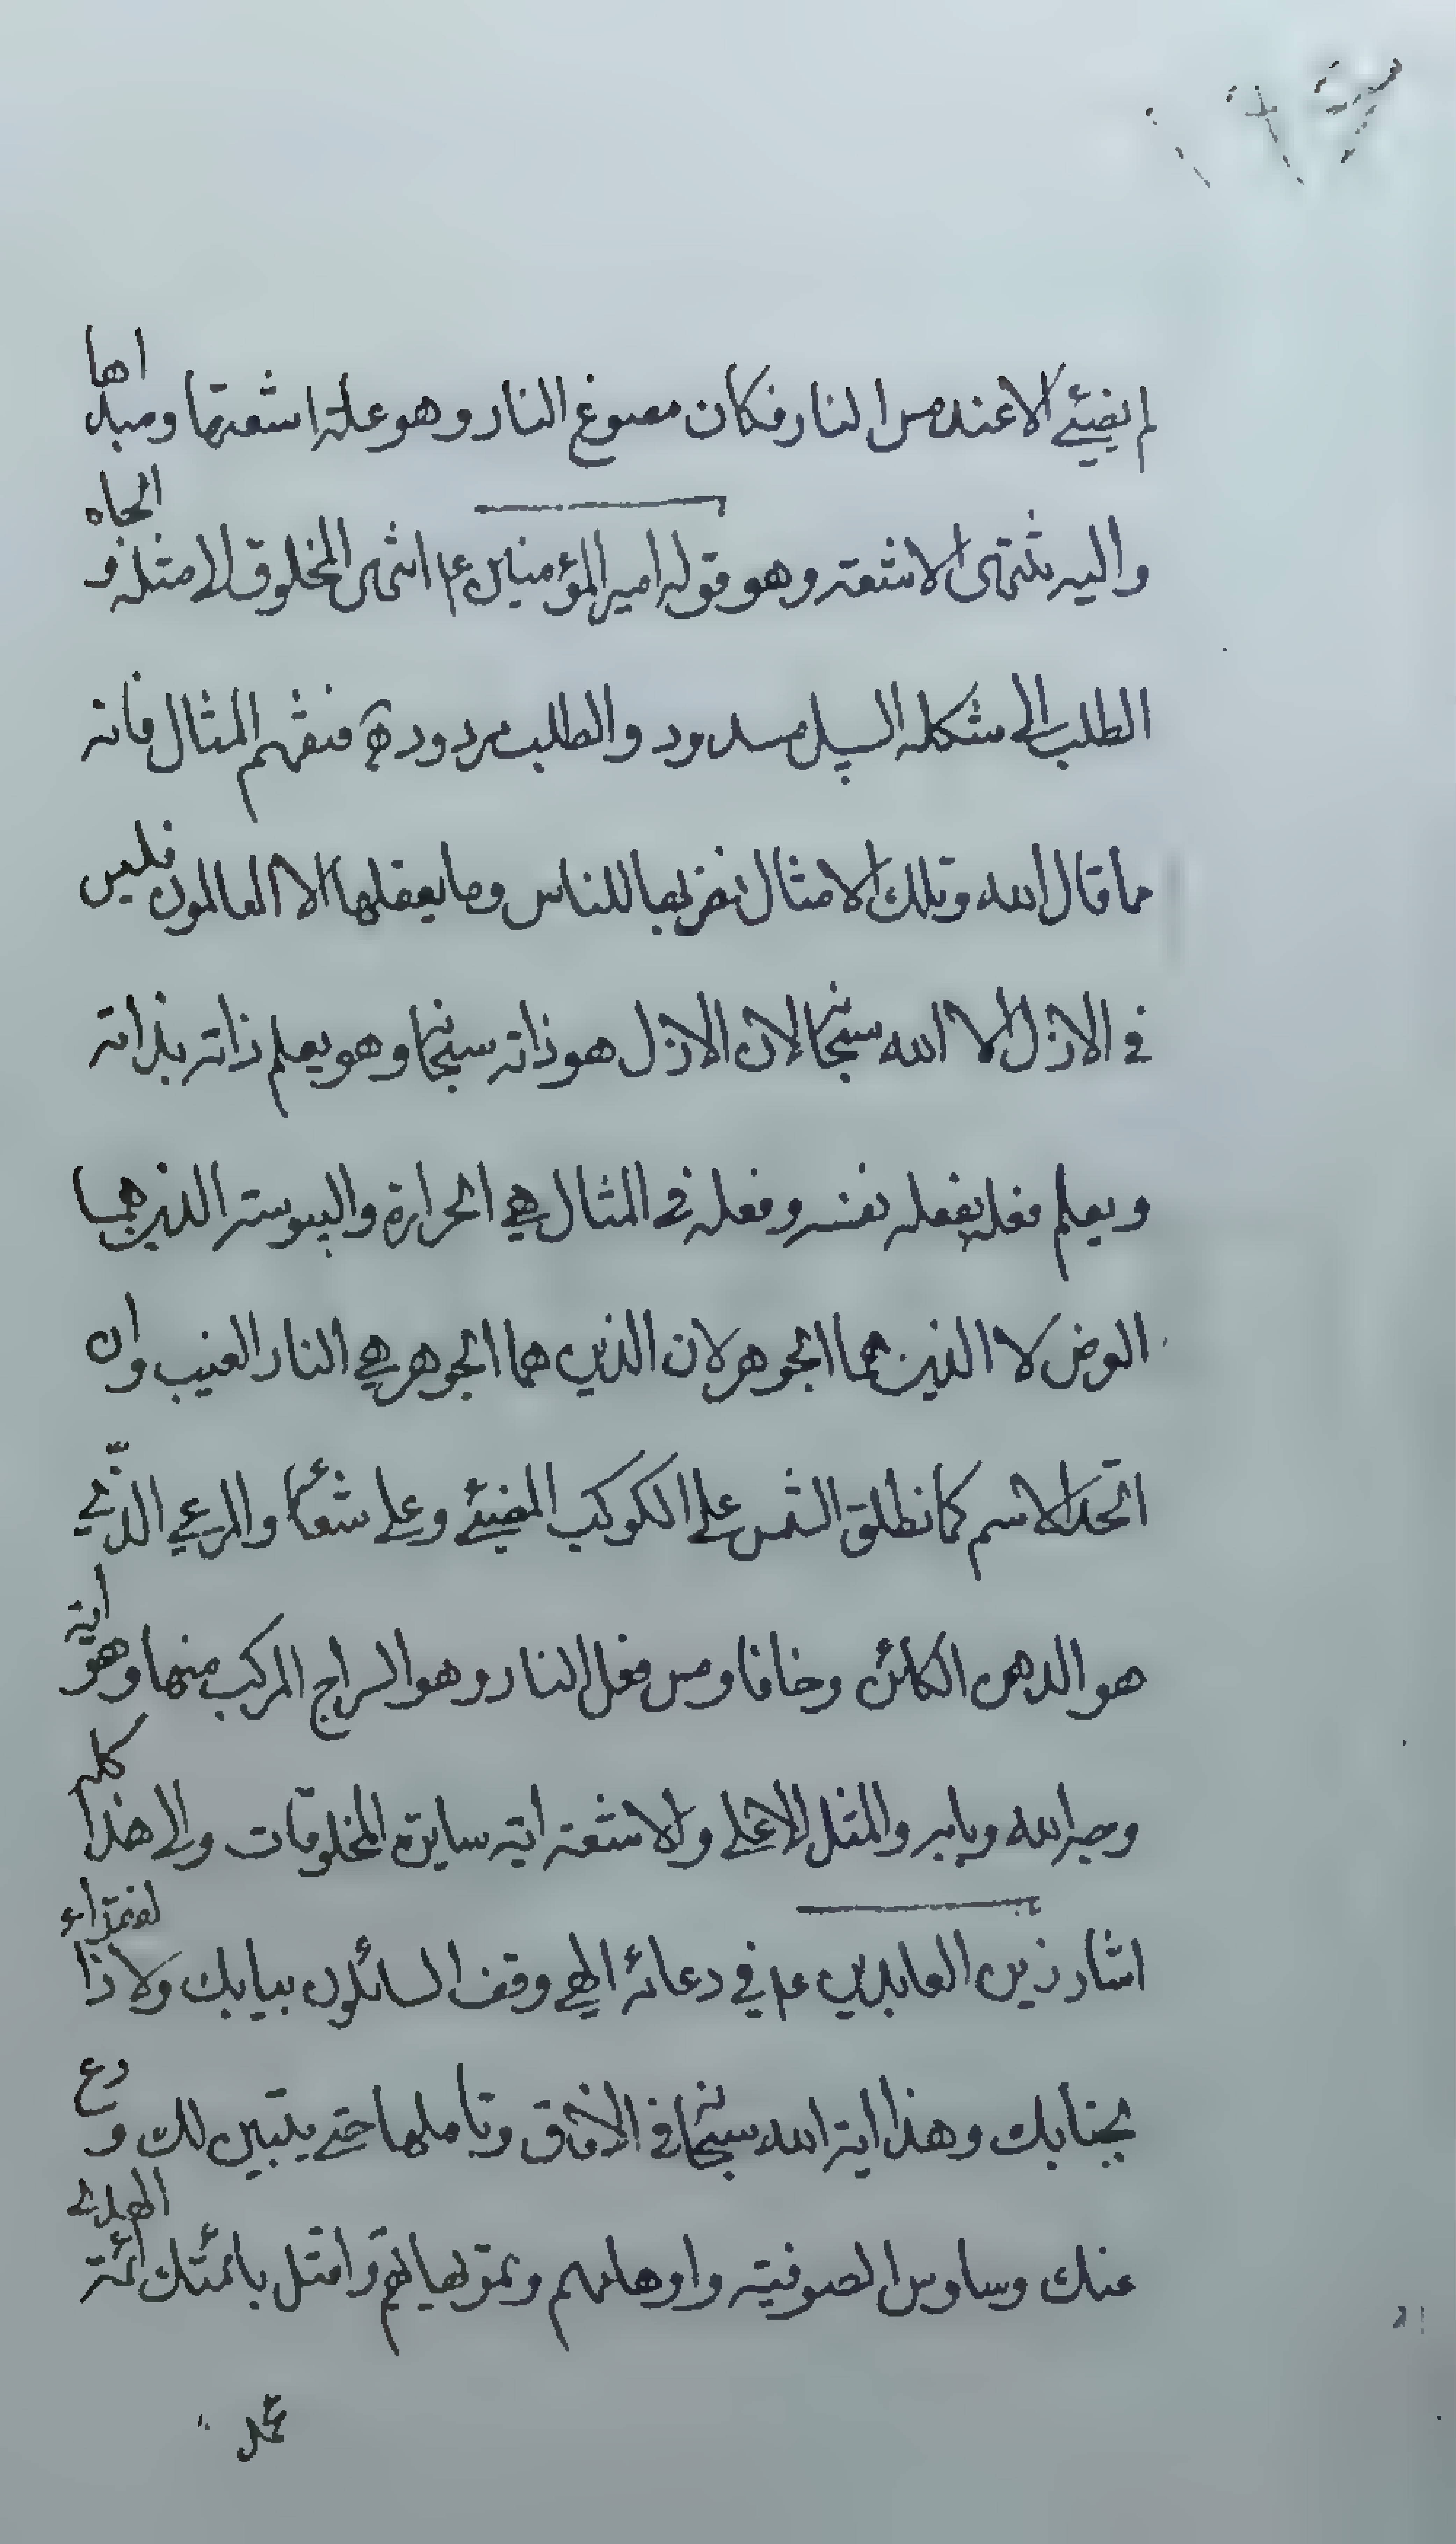 لم يضيئ الا عند مس النار فكان مصوغ النار وهو علة اشعتها ومبداها
واليه تنتهى الاشعته وهو قوله امير المؤمنين ع م انتهى المخلوق الى مثله و الجاه
الطلب الى مشكله السبيل مسدود والطلب مردود ه فتفهم المثال فانه
ما قال الله وتلك الامثال نضربها للناس وما يعقلها الا العالمون فليس
فى الازل الا الله سبحانه لان الازل هو ذاته سبحانه وهو يعلم ذاته بذاته
ويعلم فعله بفعله نفسه وفعله فى المثال هى الحرارة واليبوسته الذين هما
العرض لا الذين هما الجوهر لان الذين هما الجوهر هى النار الغيب وان
اتحد الاسم كما نطلق الشمس على الكوكب المضيئ وعلى شعاعها والمرعى الذى
هو الدهن الكائن دخانا ومس فعل النار وهو السراج المركب منهما وهو اية
وجه الله وبابه والمثل الاعلى والاشعته اية سايرة المخلوقات والى هذا كله
اشار زين العابدين ع م فى دعائه الهى وقف السائلون ببابك ولاذ الفقراء
بجنابك وهذا اية الله سبحانه فى الافاق وتاملها حتى يتبين لك و دع
عنك وساوس الصوفيته واوهامهم وتمويهاتهم وامتثل بائمتك ائمة الهدى
محمد